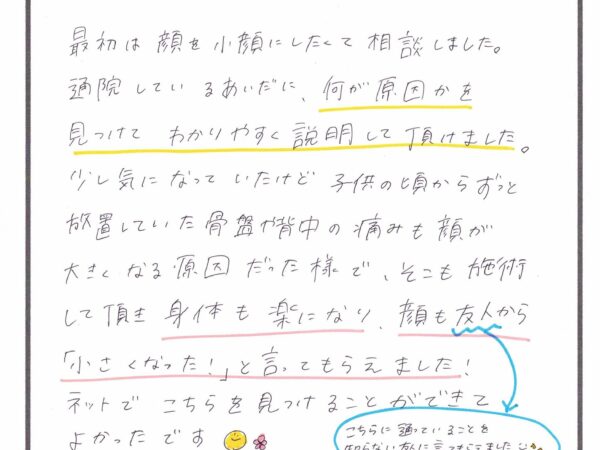 最初は顔を小顔にしたくて相談しました。
通院しているあいだに、何が原因かを
見つけてわかりやすく説明して頂けました。
少し気になっていたけど子供の頃からずっと
放置していた骨盤や背中の痛みも顔が
大きくなる原因だった様で、そこも施術
して頂き身体も楽になり、顔も友人から
「小さくなった!」と言ってもらえました!
ネットでこちらを見つけることができて
よかったです
こちらに通っていることを
知らない友人に言ってもらえました